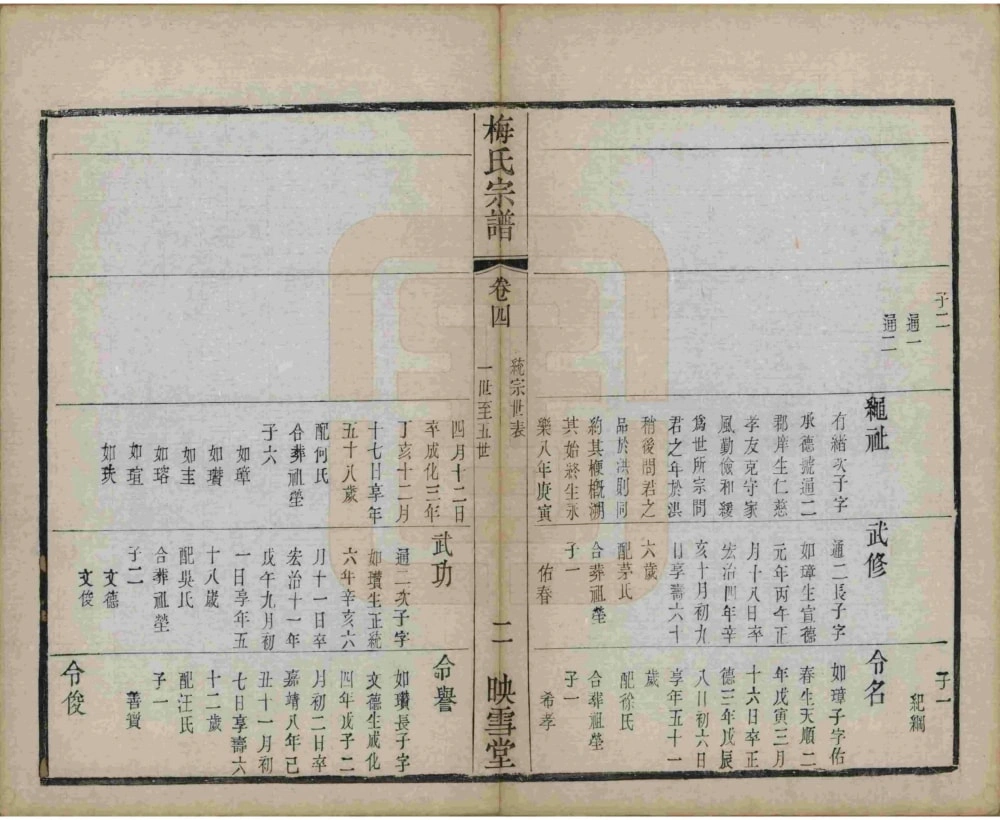 子二
通一
通二
繩祉
有緒次子字
承德號通二
郡庠生仁慈
孝友克守家
風勤儉和緩
爲世所宗問
君之年於洪
稍後問君之
品於洪則同
約其梗概溯
其始終生永
樂八年庚寅
武修
通二長子字
如璋生宣德
元年丙午正
月十八日卒
宏治四年辛
亥十月初九
日享壽六十
六歲
配茅氏
合葬祖塋
子一
佑春
子一
紀綱
令名
如璋子字佑
春生天順二
年戊寅三月
十六日卒正
德三年戊辰
八月初六日
享年五十一
歲
配徐氏
合葬祖塋
子一
希孝
梅氏宗譜
卷四
統宗世表
一世至五世
二
映雪堂
四月十二日
卒成化三年
丁亥十二月
十七日享年
五十八歲
配何氏
合葬祖塋
子六
如璋
如瓚
如圭
如瑢
如瑄
如玞
武功
通二次子字
如瓚生正統
六年辛亥六
月十一日卒
宏治十一年
戊午九月初
一日享年五
十八歲
配吳氏
合葬祖塋
子二
文德
文俊
令譽
如瓚長子字
文德生成化
四年戊子二
月初二日卒
嘉靖八年己
丑十一月初
七日享壽六
十二歲
配汪氏
子一
善寶
令俊